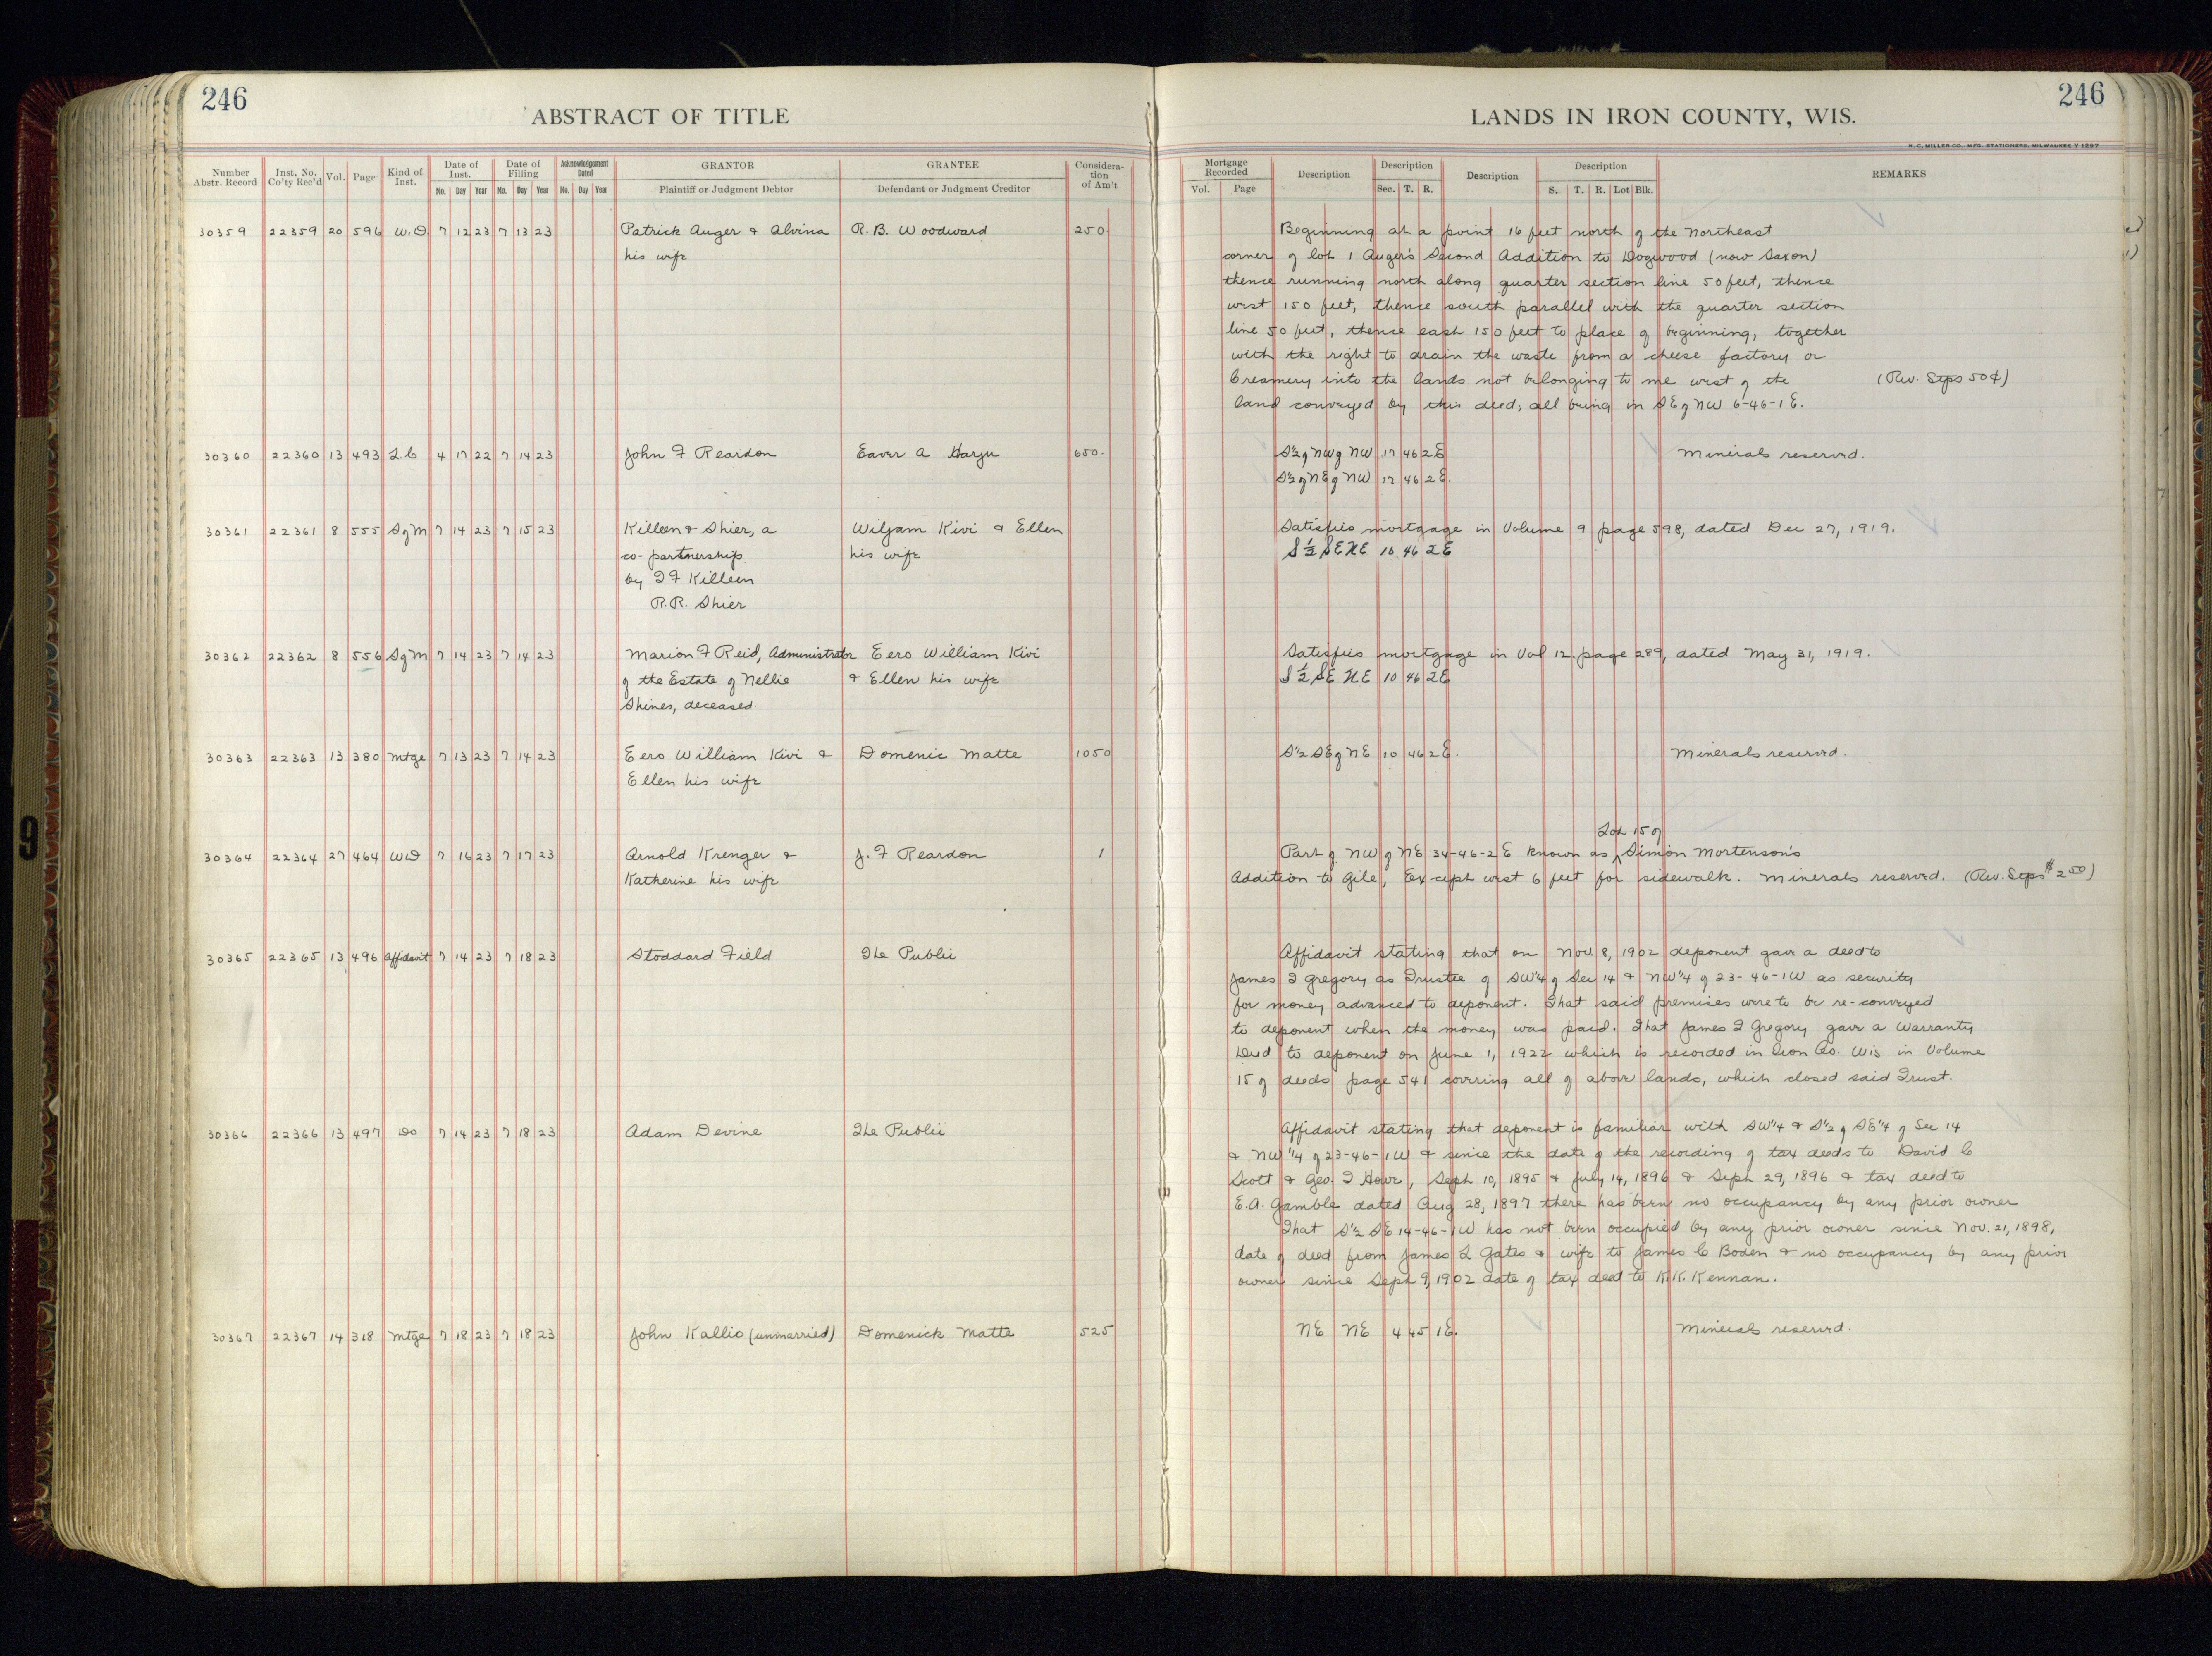 246
ABSTRACT OF TITLE
Number Abstr. Record | Inst. No. Co'ty Rec'd | Vol. | Page | Kind of Inst. | Date of Inst. | Date of Filling | Acknowledgment Dated | GRANTOR | GRANTEE | Consideration of Am't
Mo. Day Year | Mo. Day Year | Mo. Day Year | Plaintiff or Judgment Debtor | Defendant or Judgment Creditor
30359 22359 20 596 W.D. 7 12 23 7 13 23 Patrick Auger & Alvina R.B. Woodward 250.
his wife
30360 22360 13 493 L.C 4 17 22 7 14 23 John F Reardon Eaver A Harju 650.
30361 22361 8 555 S of M 7 14 23 7 15 23 Killeen & Shier, a Wiljam Kivi & Ellen
co-partnership his wife
by T F Killeen
R.R. Shier
30362 22362 8 556 S of M 7 14 23 7 14 23 Marion F Reid, Administrator Eero William Kivi
of the Estate of Nellie & Ellen his wife
Shines, deceased.
30363 22363 13 380 Mtge 7 13 23 7 14 23 Eero William Kivi & Domenic Matte 1050
Ellen his wife
30364 22364 27 464 WD 7 16 23 7 17 23 Arnold Krenger & J. F Reardon 1
Katherine his wife
30365 22365 13 496 Affidavit 7 14 23 7 18 23 Stoddard Field The Public
30366 22366 13 497 Do 7 14 23 7 18 23 Adam Devine The Public
30367 22367 14 318 Mtge 7 18 23 7 18 23 John Kallio (unmarried) Domenick Matte 525
246
LANDS IN IRON COUNTY, WIS.
H. C. MILLER CO., MFG. STATIONERS, MILWAUKEE
Mortgage Recorded | Description | Description | Description | Description | REMARKS
Vol. Page | Sec. T. R. | S. T. R. Lot Blk.
Beginning at a point 16 feet north of the Northeast
corner of lot 1 Auger's Second Addition to Dogwood (now Saxon)
thence running north along quarter section line 50 feet, thence
west 150 feet, thence south parallel with the quarter section
line 50 feet, thence east 150 feet to place of beginning, together
with the right to drain the waste from a cheese factory or
Creamery into the lands not belonging to me west of the (Rev. Stps 50¢)
land conveyed by this deed; all being in SE of NW 6-46-1E.
S½ of NW of NW 17 46 2E Minerals reserved.
S½ of NE of NW 17 46 2E.
Satisfies mortgage in Volume 9 page 598, dated Dec 27, 1919.
S½ SE NE 10 46 2E
Satisfies mortgage in Vol 12. page 289, dated May 31, 1919.
S½ SE NE 10 46 2E
S½ SE of NE 10 46 2E. Minerals reserved.
Lot 15 of
Part of NW of NE 34-46-2E known as ^ Simon Mortenson's
Addition to Gile, Except west 6 feet for sidewalk. Minerals reserved. (Rev. Stps $2 50)
Affidavit stating that on Nov. 8, 1902 deponent gave a deed to
James T Gregory as Trustee of SW¼ of Sec 14 & NW¼ of 23-46-1W as security
for money advanced to deponent. That said premises were to be re-conveyed
to deponent when the money was paid. That James T Gregory gave a Warranty
Deed to deponent on June 1, 1922 which is recorded in Iron Co. Wis in Volume
15 of deeds page 541 covering all of above lands, which closed said Trust.
Affidavit stating that deponent is familiar with SW¼ & S½ of SE¼ of Sec 14
& NW¼ of 23-46-1W & since the date of the recording of tax deeds to David C
Scott & Geo. T Howe, Sept 10, 1895 & July 14, 1896 & Sept 29, 1896 & tax deed to
E.A. Gamble dated Aug 28, 1897 there has been no occupancy by any prior owner
That S½ SE 14-46-1W has not been occupied by any prior owner since Nov. 21, 1898,
date of deed from James L Gates & wife to James C Boden & no occupancy by any prior
owner since Sept 9, 1902 date of tax deed to K.K. Kennan.
NE NE 4 45 1E. Minerals reserved.
9